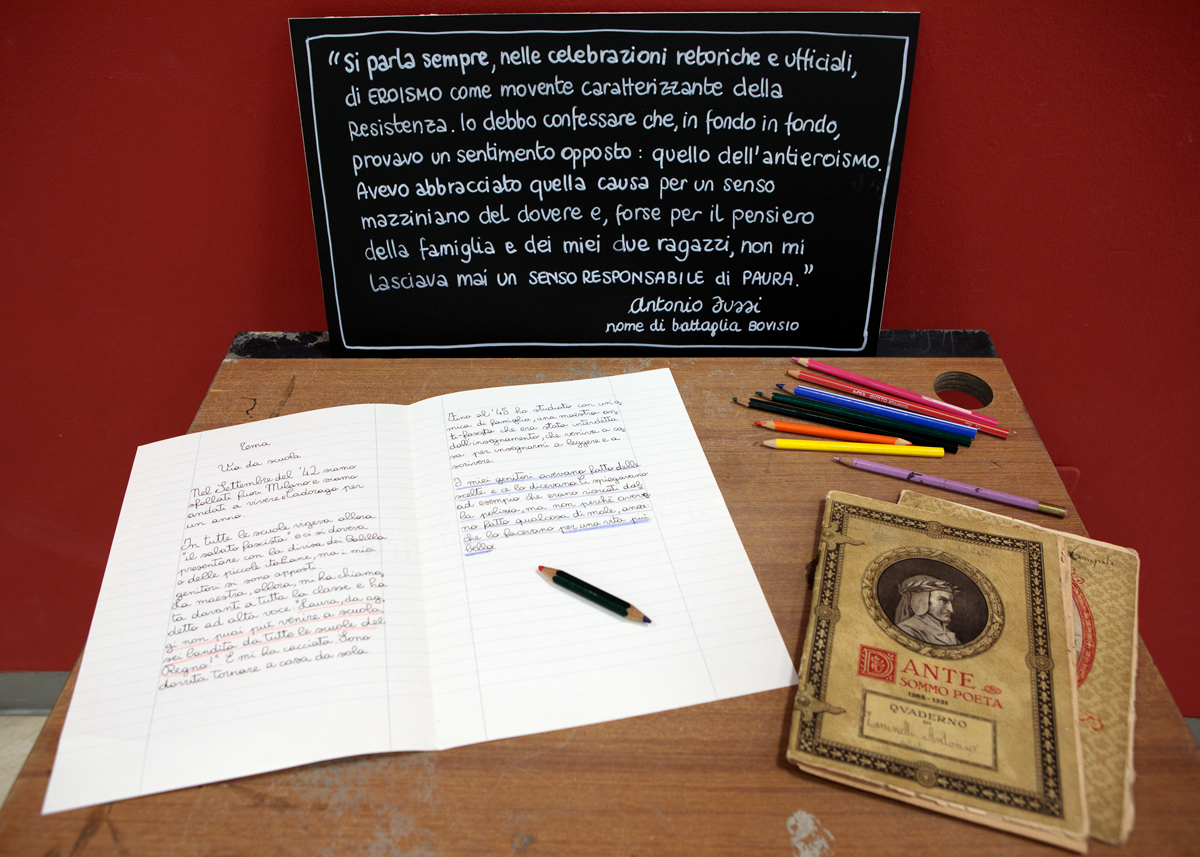 “Si parla sempre, nelle celebrazioni retoriche e ufficiali,
di EROISMO come movente caratterizzante della
Resistenza. Io debbo confessare che, in fondo in fondo,
provavo un sentimento opposto: quello dell'antieroismo.
Avevo abbracciato quella causa per un senso
mazziniano del dovere e, forse per il pensiero
della famiglia e dei miei due ragazzi, non mi
lasciava mai un SENSO RESPONSABILE di PAURA.”
Antonio Jussi
nome di battaglia BOVISIO
Tema
Via da scuola
Nel Settembre del '42 siamo
sfollati fuori Milano e siamo
andati a vivere a Cadorago per
un anno.
In tutte le scuole vigeva allora
"il sabato fascista" e ci si doveva
presentare con la divisa dei Balilla
o delle piccole italiane, ma i miei
genitori si sono opposti.
La maestra, allora, mi ha chiama
ta davanti a tutta la classe e ha
detto ad alta voce "Laura, da og
gi non puoi più venire a scuola,
sei bandita da tutte le scuole del
Regno!" E mi ha cacciata. Sono
dovuta tornare a casa da sola
Fino al '45 ho studiato con un'a
mica di famiglia, una maestra an
ti-fascista che era stata interdetta
dall'insegnamento, che veniva a ca
sa per insegnarmi a leggere e a
scrivere.
I miei genitori avevano fatto delle
scelte e ce lo dicevano. Ci spiegavano
ad esempio che erano ricercati dal
la polizia, ma non perché aveva
no fatto qualcosa di male, anzi
che lo facevano per una vita più
bella.
DANTE
SOMMO POETA
1265-1321
QVADERNO
DI
Antonio